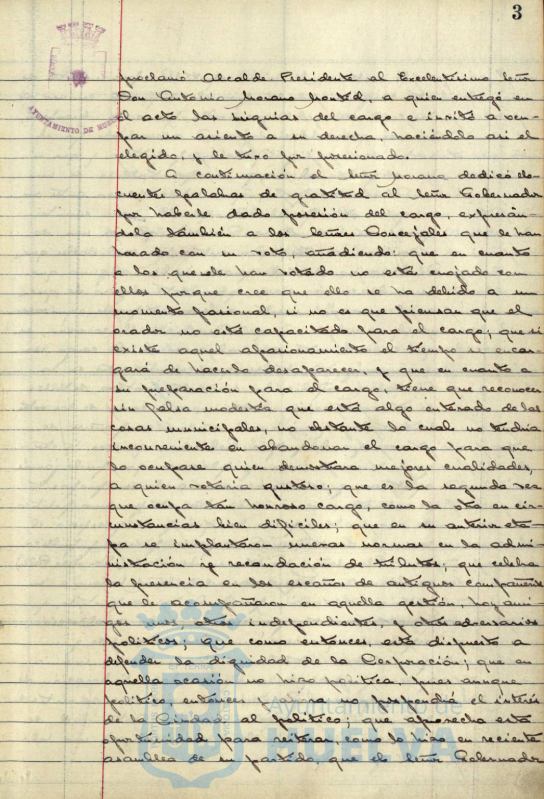 3
AYUNTAMIENTO DE HUELVA
proclamó Alcalde Presidente al Excelentísimo Señor
Don Antonio Moreno Montiel, a quien entregó en
el acto las insignias del cargo e invitó a ocu-
par un asiento a su derecha, haciéndolo así el
elegido, y le tuvo por posesionado.
A continuación el Señor Moreno dedicó elo-
cuentes palabras de gratitud al Señor Gobernador
por haberle dado posesión del cargo, expresán-
dola también a los Señores Concejales que le han
honrado con su voto, añadiendo: que en cuanto
a los que no le han votado no está enojado con
ellos porque cree que ello se ha debido a un
momento pasional, si no es que piensan que el
orador no está capacitado para el cargo; que si
existe aquel apasionamiento el tiempo se encar-
gará de hacerlo desaparecer, y que en cuanto a
su preparación para el cargo, tiene que reconocer
sin falsa modestia que está algo enterado de las
cosas municipales, no obstante lo cual no tendría
inconveniente en abandonar el cargo para que
lo ocupase quien demostrara mejores cualidades,
a quien votaría gustoso; que es la segunda vez
que ocupa tan honroso cargo, como la otra en cir-
cunstancias bien difíciles; que en su anterior eta-
pa se implantaron nuevas normas en la admi-
nistración y recaudación de tributos; que celebra
la presencia en los escaños de antiguos compañeros
que le acompañaron en aquella gestión, hoy ami-
gos unos, otros independientes, y otros adversarios
políticos; que como entonces, está dispuesto a
defender la dignidad de la Corporación; que en
aquella ocasión no hizo política, pues aunque
político, entonces y ahora no pospondrá el interés
de la Ciudad al político; que aprovecha esta
oportunidad para reiterar, como lo hizo en reciente
asamblea de su partido, que el Señor Gobernador
Ayuntamiento de
HUELVA